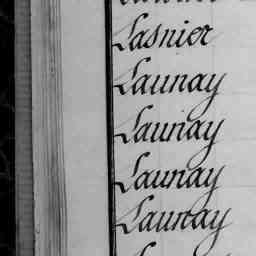 Lasnier
Launay
Launay
Launay
Launay